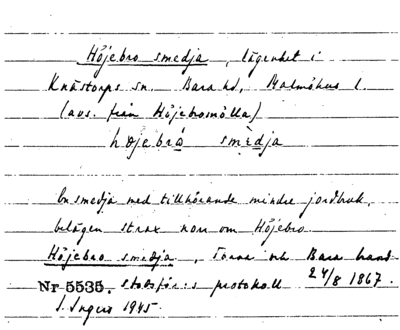 Höjebro smedja, lägenhet i
Knästorps sn. Bara hd, Malmöhus l.
(avs. från Höjebromölla)
højebrå smèdja
En smedja med tillhörande mindre jordbruk,
belägen strax norr om Höjebro.
Höjebro smedja, Torna och Bara härad
Nr 5535. protokoll 24/8 1867.
S. Ingers 1945.